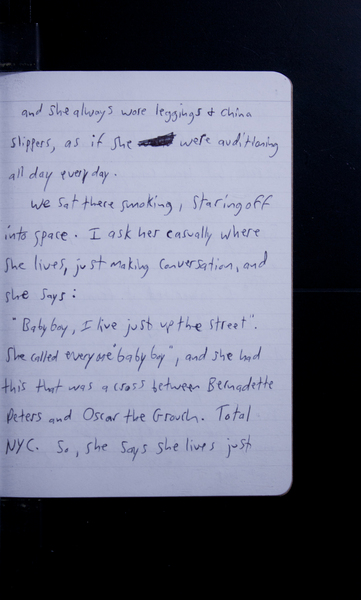 and she always wore leggings & china
slippers, as if she were auditioning
all day every day.
We sat there smoking, staring off
into space. I ask her casually where
she lives, just making conversation, and
she says:
"Baby boy, I live just up the street".
She called everyone "baby boy", and she had
this that was a cross between Bernadette
Peters and Oscar the Grouch. Total
NYC. So, she says she lives just